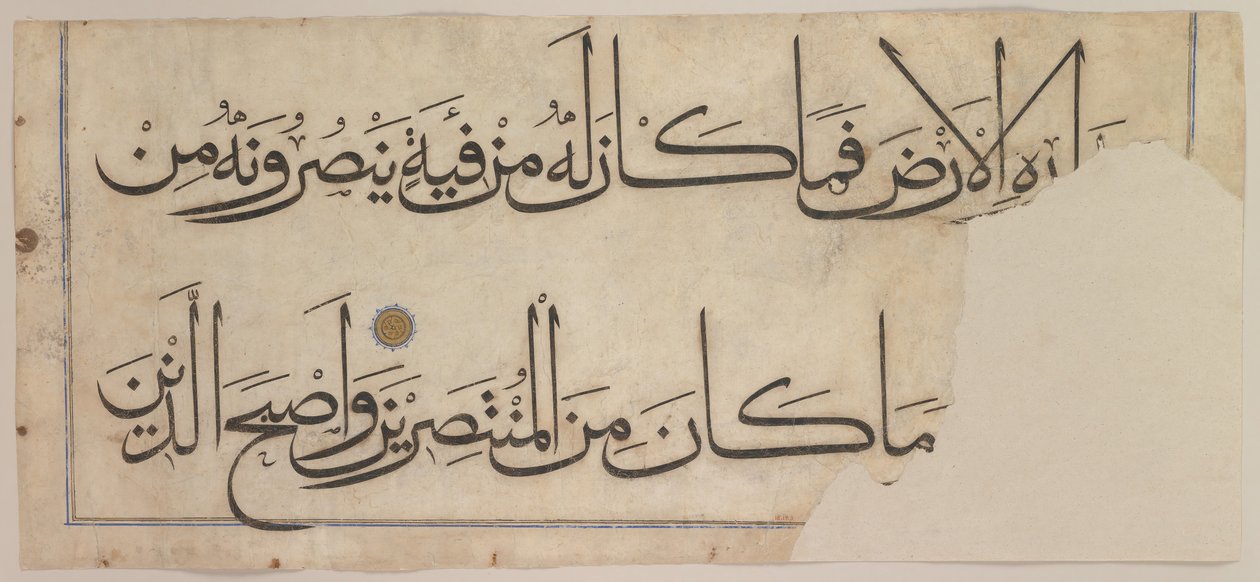 ارهِ الْاَرْضَ فَمَا كَانَ لَهُ مِنْ فِئَةٍ يَنْصُرُونَهُ مِنْ
مَا كَانَ مِنَ الْمُنْتَصِرِينَ وَاَصْبَحَ الَّذِينَ